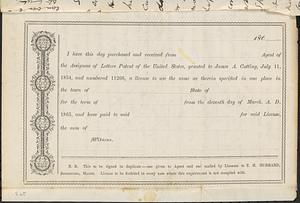 186
I have this day purchased and received from Agent of
the Assignees of Letters Patent of the United States, granted to James A. Cutting, July 11,
1854, and numbered 11266, a license to use the same as therein specified in one place in
the town of State of
for the term of from the eleventh day of March, A. D.
1865, and have paid to said for said License,
the sum of
Witness,
N. B. This to be signed in duplicate—one given to Agent and one mailed by Licensee to T. H. HUBBARD,
License to be forfeited in every case where this requirement is not complied with.